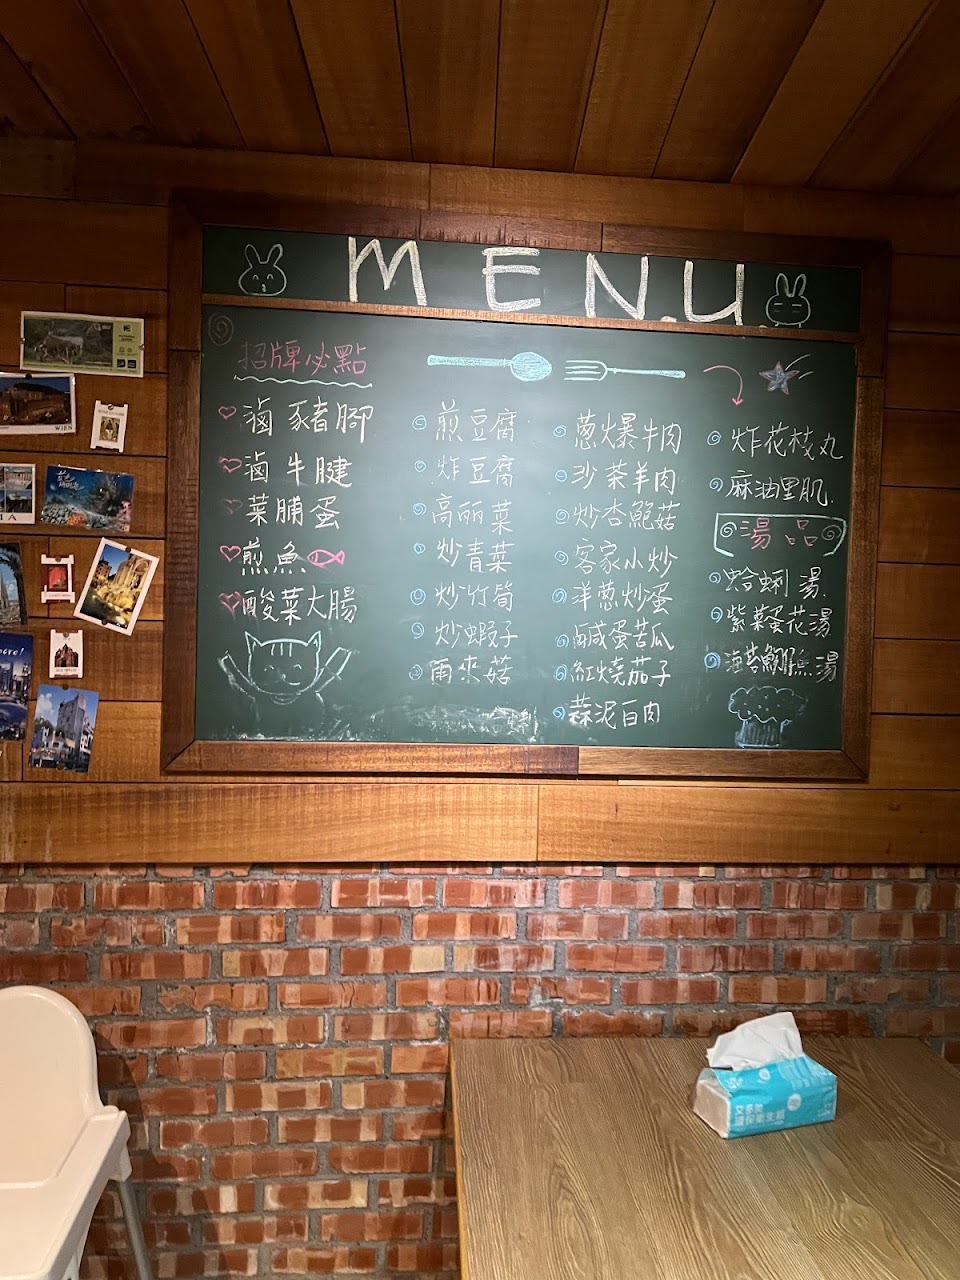 MENU
招牌必點
滷豬腳
滷牛腱
菜脯蛋
煎魚
酸菜大腸
煎豆腐
炸豆腐
高丽菜
炒青菜
炒竹筍
炒蝦子
雨來菇
蔥爆牛肉
沙茶羊肉
炒杏鮑菇
客家小炒
洋蔥炒蛋
鹹蛋苦瓜
紅燒茄子
蒜泥白肉
炸花枝丸
麻油里肌
湯品
蛤蜊湯
紫菜蛋花湯
海苔魩仔魚湯
WIEN